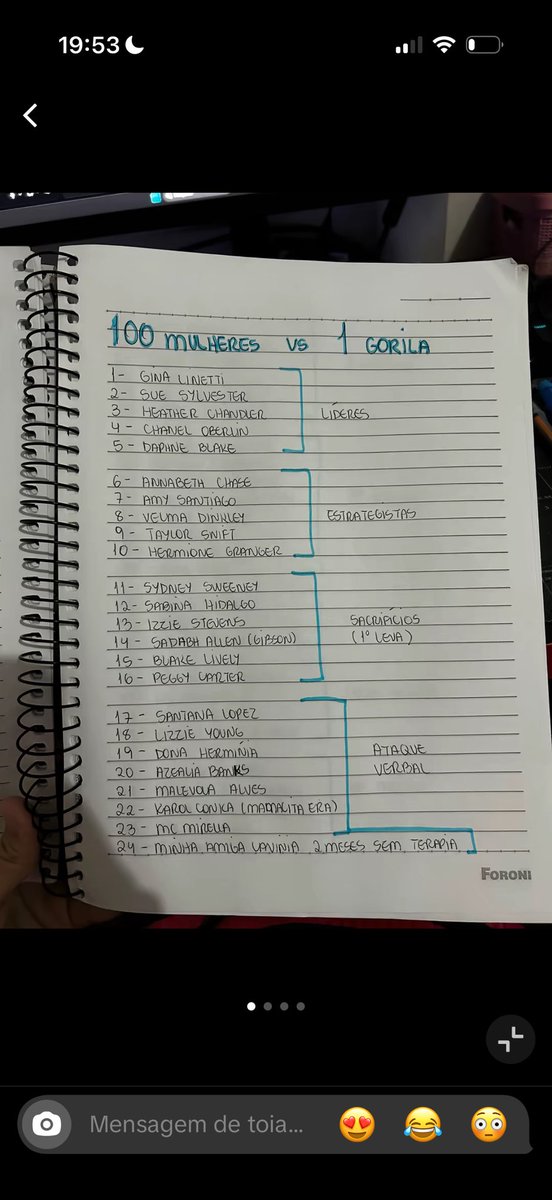 19:53
100 MULHERES VS 1 GORILA
1- GINA LINETTI
2- SUE SYLVESTER
3- HEATHER CHANDLER
4- CHANEL OBERLIN
5- DAPHNE BLAKE
LÍDERES
6- ANNABETH CHASE
7- AMY SANTIAGO
8- VELMA DINKLEY
9- TAYLOR SWIFT
10- HERMIONE GRANGER
ESTRATEGISTAS
11- SYDNEY SWEENEY
12- SABINA HIDALGO
13- IZZIE STEVENS
14- SADABH ALLEN (GIBSON)
15- BLAKE LIVELY
16- PEGGY CARTER
SACRIFÍCIOS
(1º LEVA)
17- SANTANA LOPEZ
18- LIZZIE YOUNG
19- DONA HERMINIA
20- AZEALIA BANKS
21- MALEVOLA ALVES
22- KAROL CONKA (MAMALITA ERA)
23- MC MIRELLA
24- MINHA AMIGA LAVINIA 2 MESES SEM TERAPIA
ATAQUE
VERBAL
FORONI
Mensagem de toia...